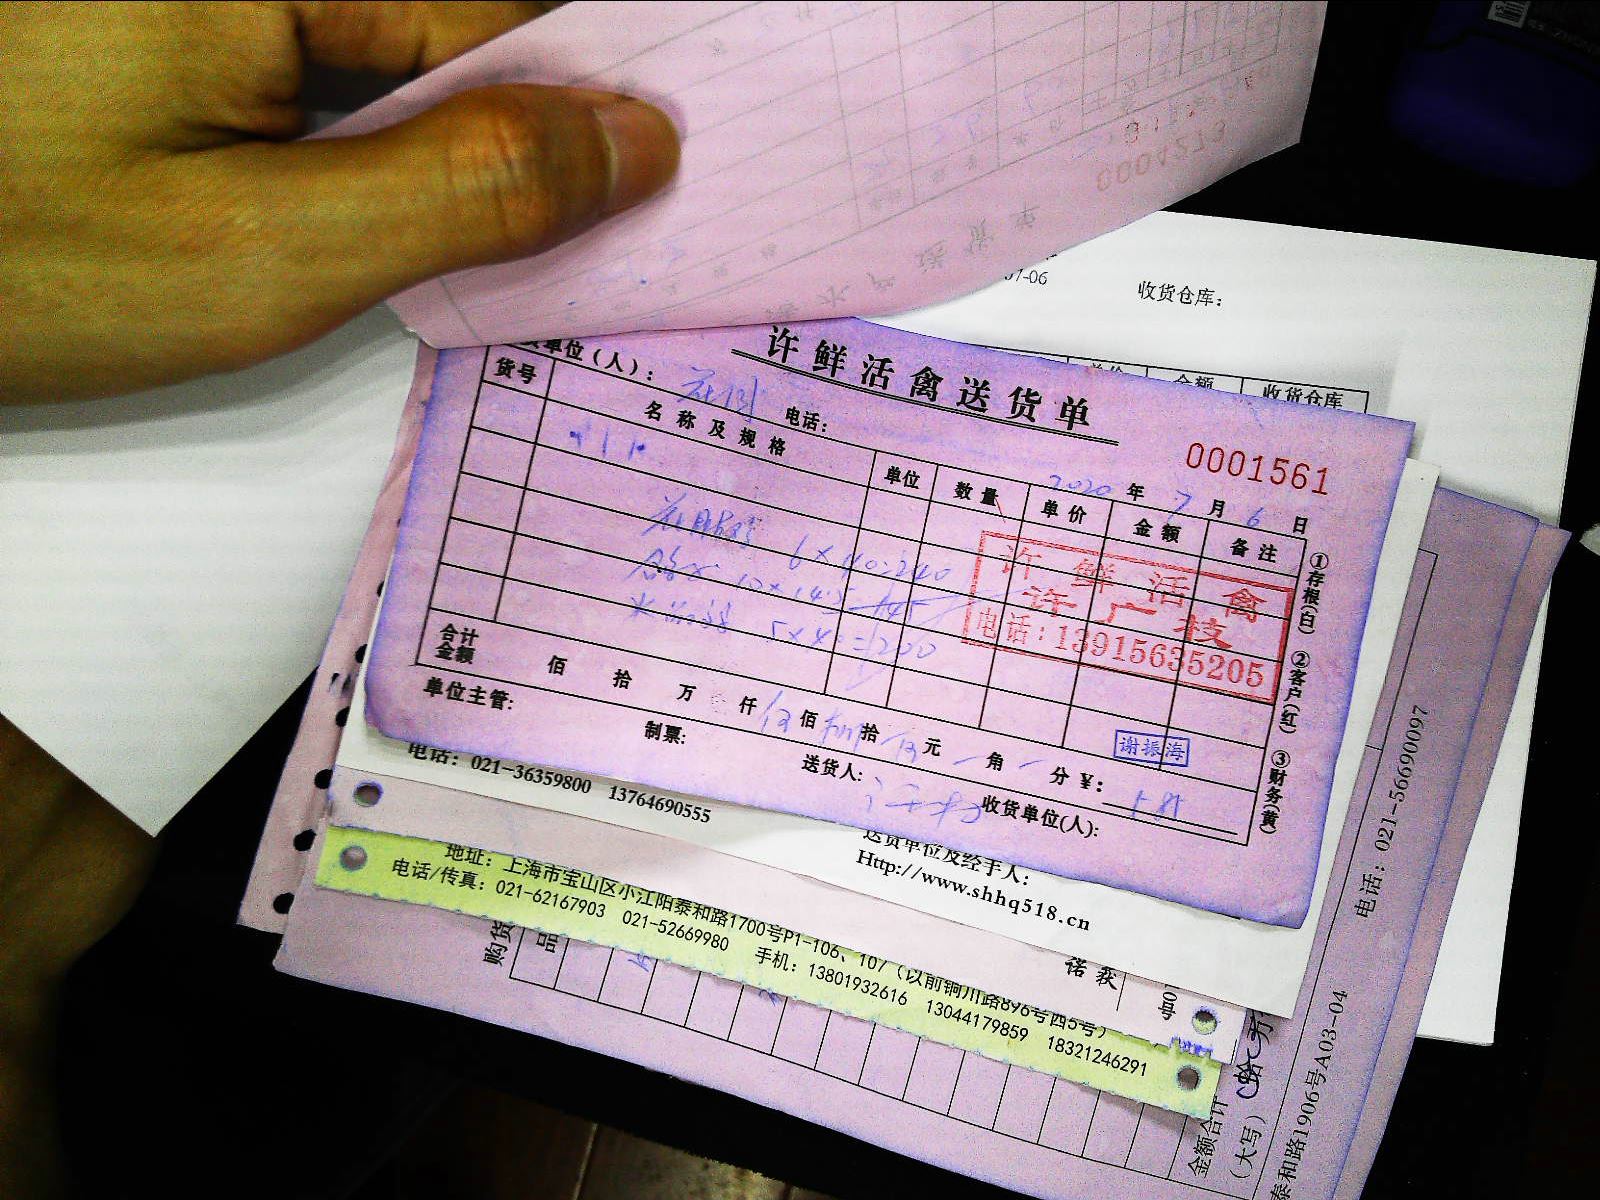 0004273
07-06
收货仓库：
单价 金额 收货仓库
许鲜活禽送货单
货单位（人）：
电话：
0001561
2020年7月6日
货号 名称及规格 单位 数量 单价 金额 备注
6×40=240
10×14.5=145
5×40=200
许鲜活禽
许广枝
电话：13915635205
①存根(白) ②客户(红) ③财务(黄)
合计金额 佰 拾 万 仟 伍佰捌拾伍元 角 分 ¥：585
谢振海
单位主管: 制票: 送货人: 收货单位(人):
电话：021-36359800 13764690555
送货单位及经手人：
Http://www.shhq518.cn
地址：上海市宝山区小江阳泰和路1700号P1-106、107（以前铜川路896号西5号）
电话/传真：021-62167903 021-52669980 手机：13801932616 13044179859 18321246291
诺 获
号
购货
品
金额合计
（大写）
泰和路1906号A03-04 电话：021-56690097